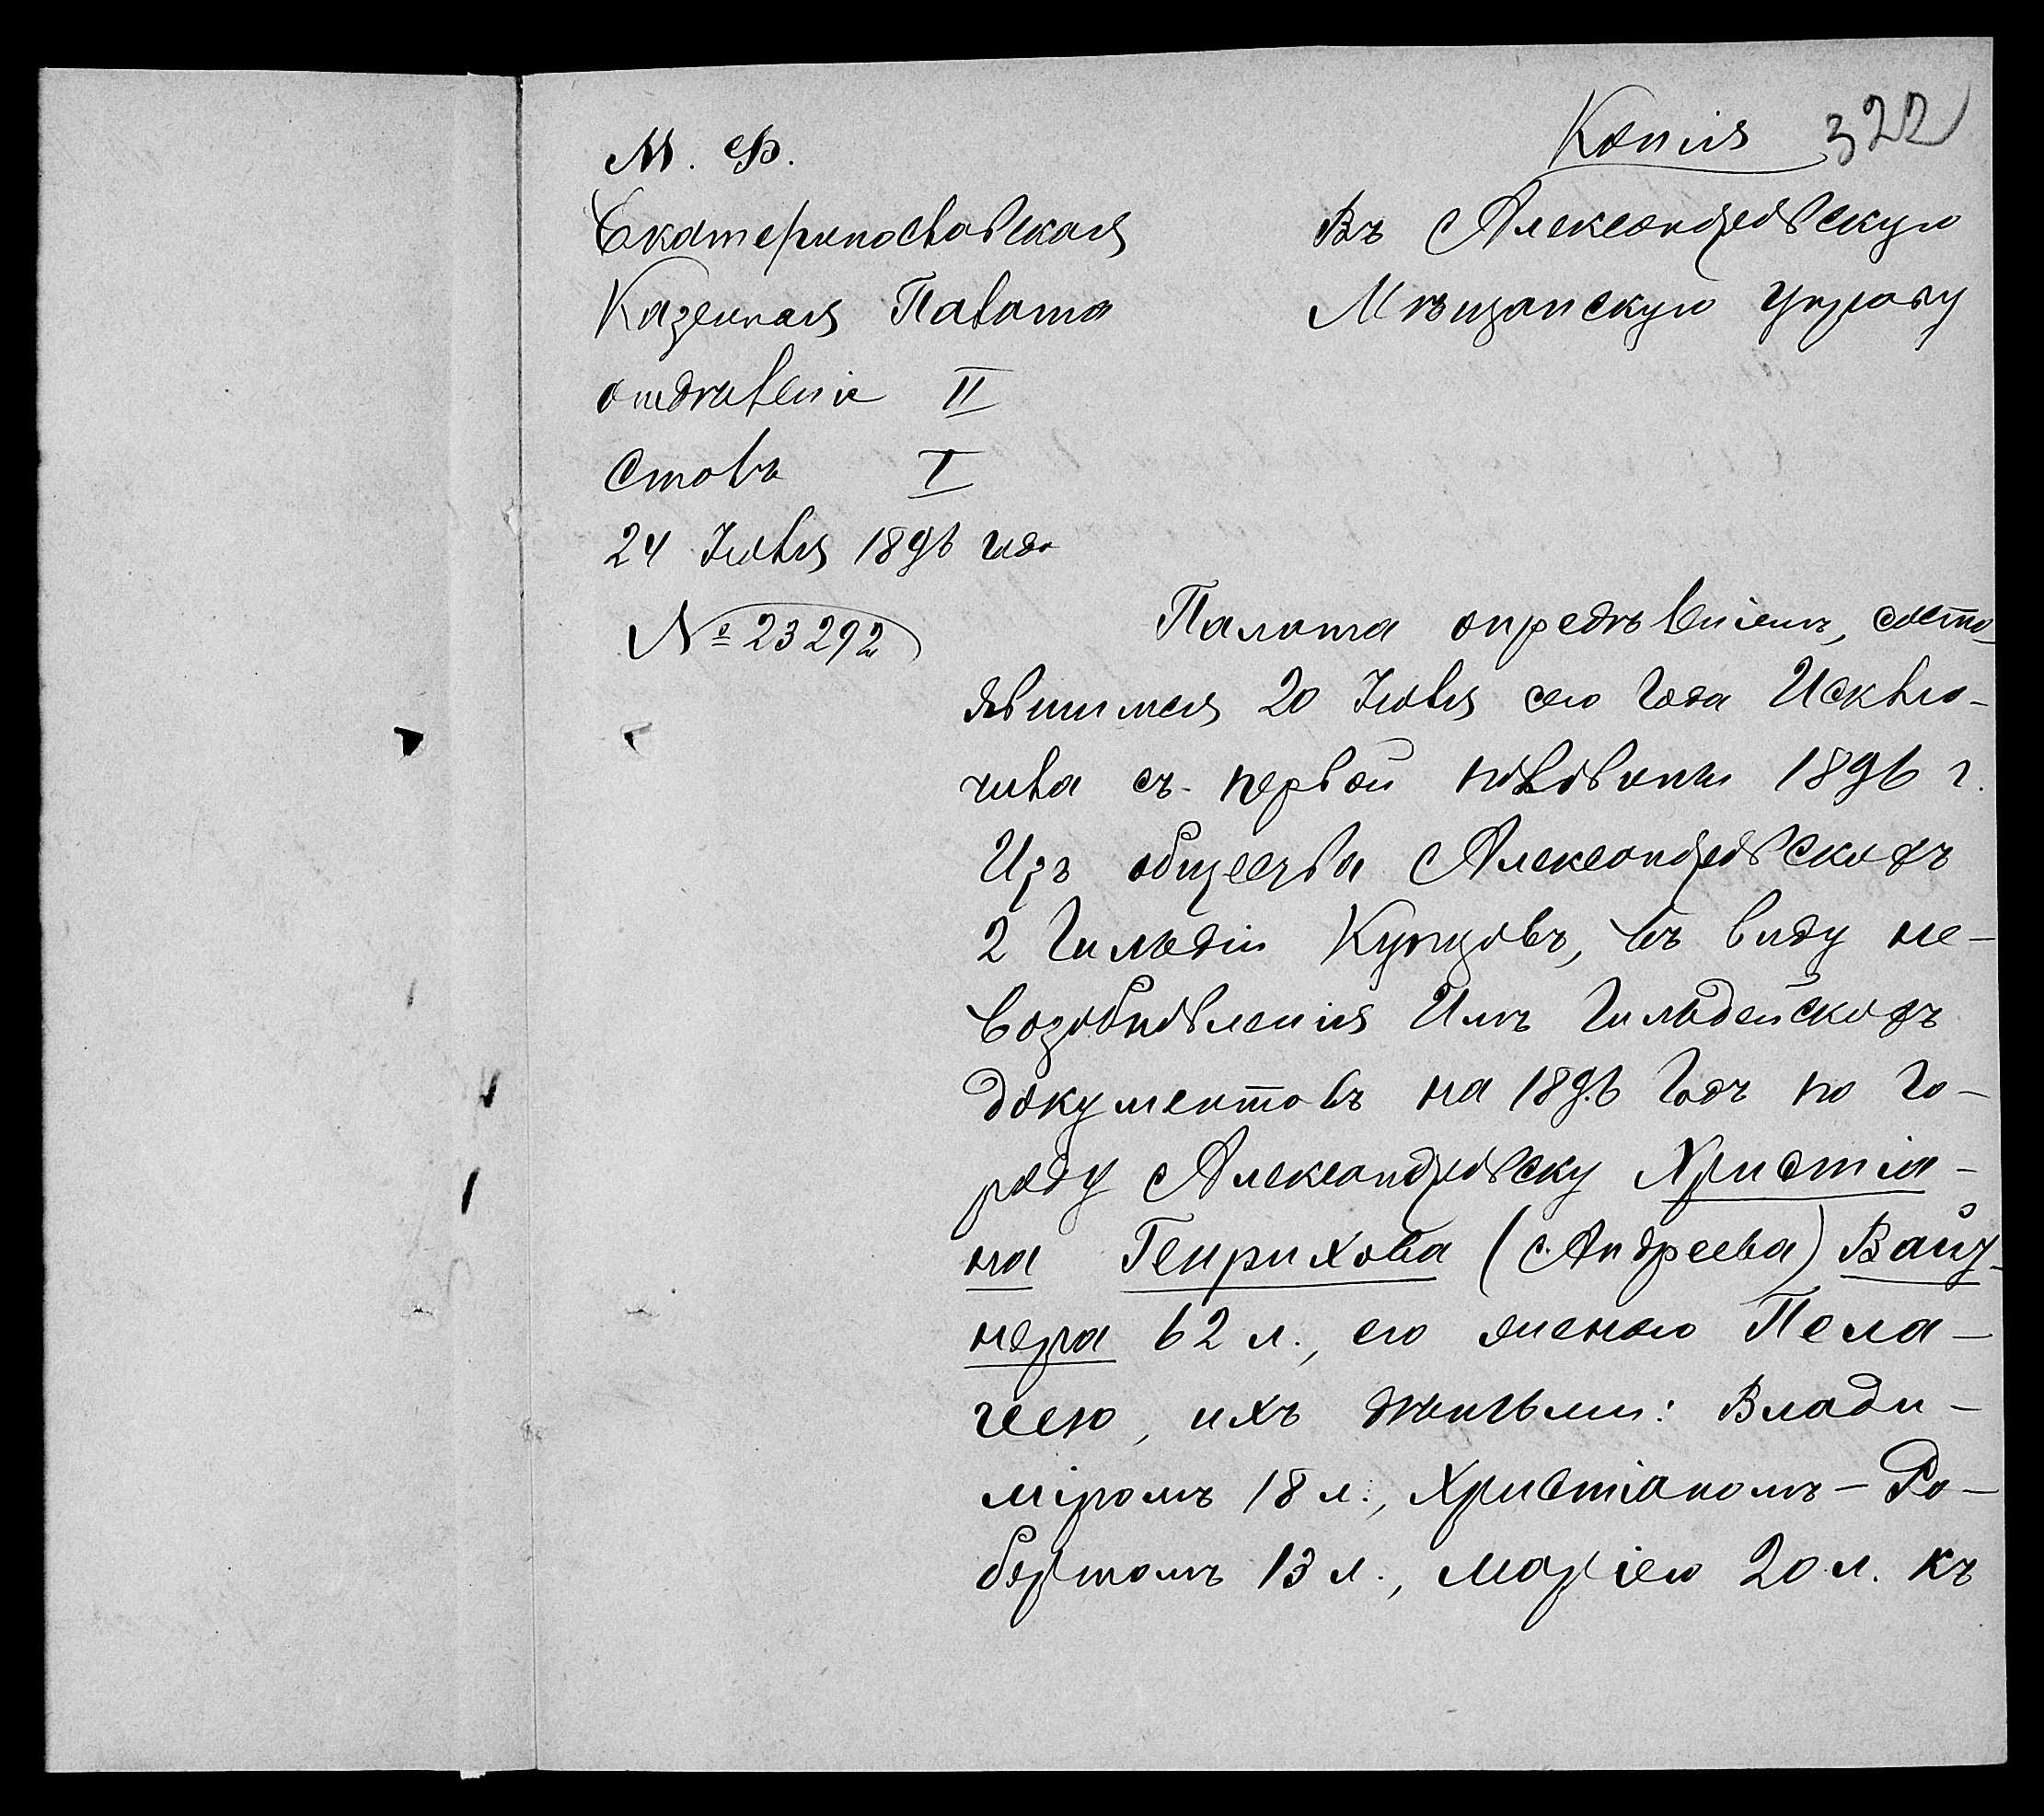 Копія 322
М. Ф.
Екатеринославская
Казенная Палата
отдѣленіе II
Столъ I
24 Іюля 1896 года
№ 23292
Въ Александровскую
Мѣщанскую Управу
Палата опредѣленіемъ, состо-
явшимся 20 Іюля сего года Исклю-
чила съ первой половины 1896 г.
Изъ общества Александровскихъ
2 Гильдіи Купцовъ, въ виду не-
возобновленія Имъ Гильдейскихъ
документовъ на 1896 годъ по го-
роду Александровску Христіа-
на Генрихова (Андреева) Вагу-
нера 62 л., его женою Пела-
геею, ихъ дѣтьми: Влади-
міромъ 18 л., Христіаномъ-Ро-
бертомъ 13 л., Маріею 20 л. къ